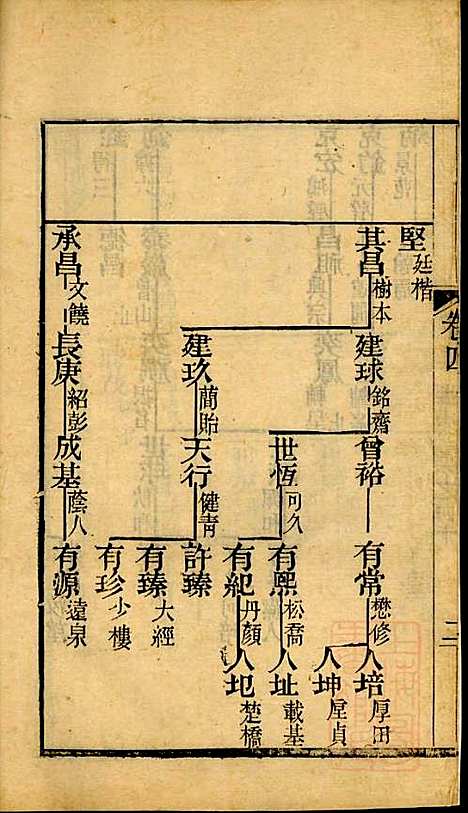 卷四
二
堅 廷楷
其昌 樹本
建球 銘齋
曾裕
有常 懋修
人培 厚田
人坤 厚貞
世恆 可久
有熙 松喬
人址 載基
有紀 丹顏
人圯 楚橋
建玖 簡貽
天行 健青
許臻
有臻 大經
有珍 少樓
承昌 文饒
長庚 紹彭
成基 蔭人
有源 遠泉